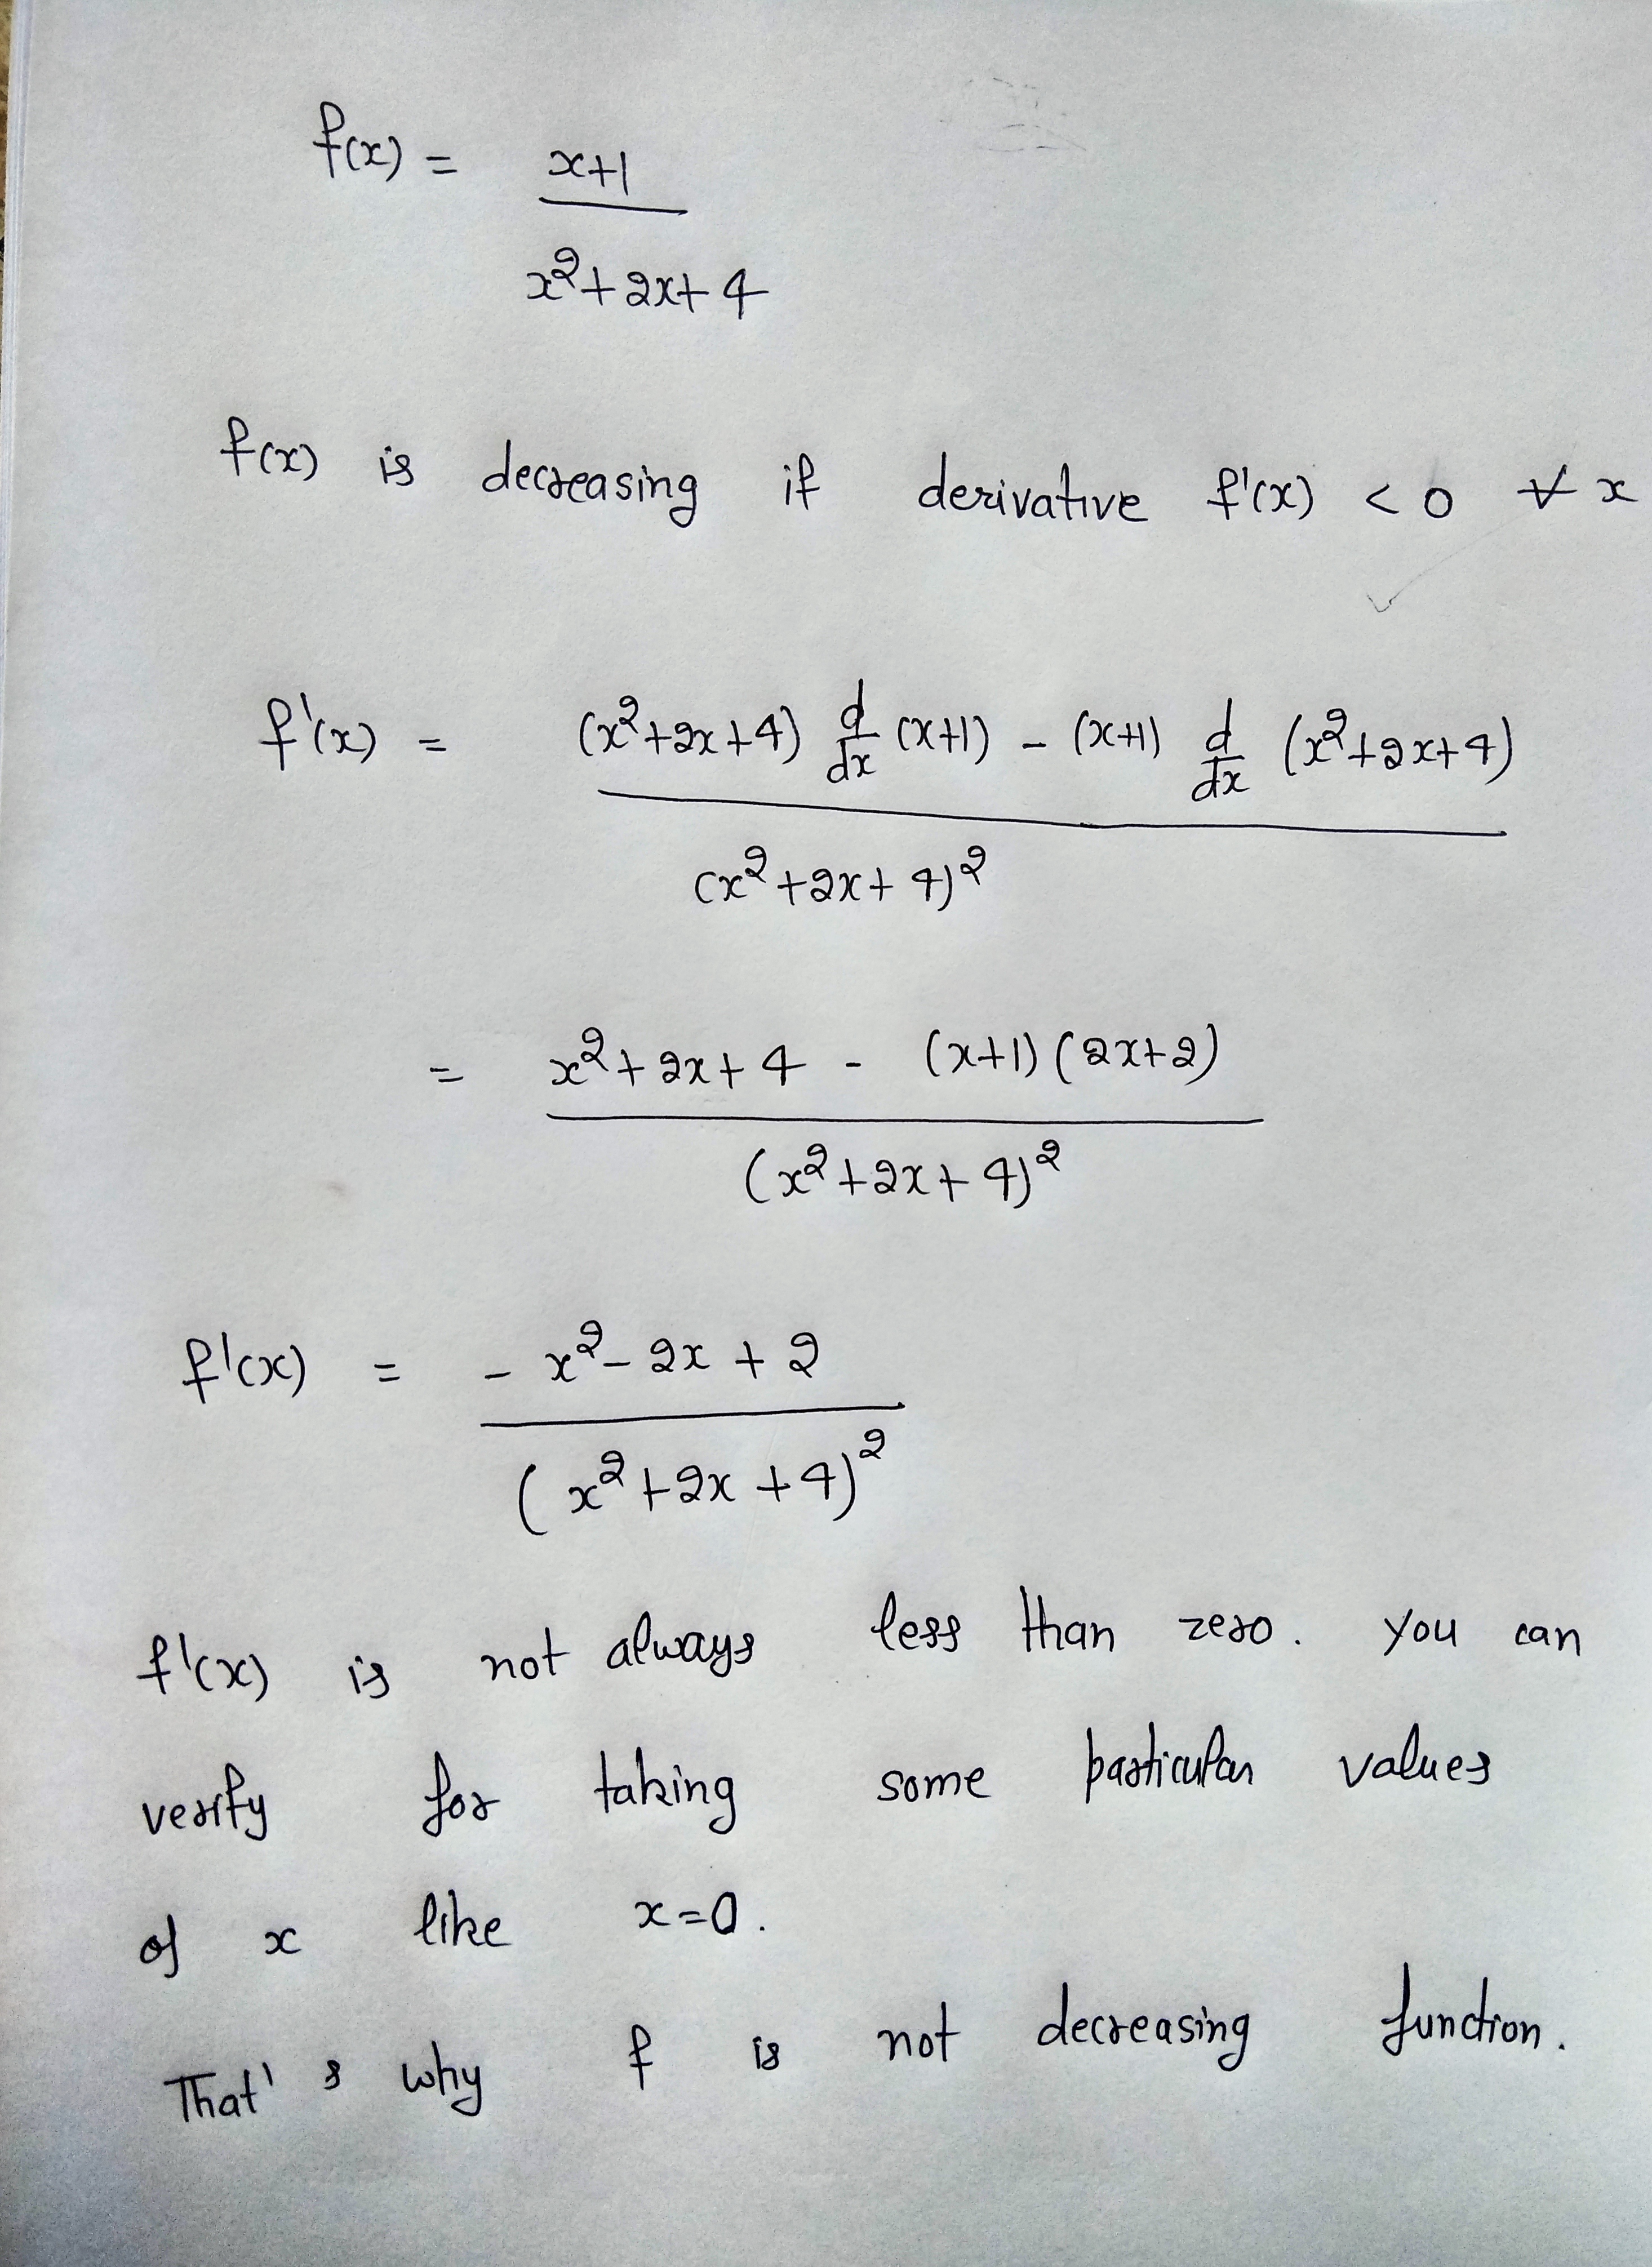 f(x) = x+1
x²+2x+4
f(x) is decreasing if derivative f'(x) < 0 ∀ x
f'(x) = (x²+2x+4) d/dx (x+1) - (x+1) d/dx (x²+2x+4)
(x²+2x+4)²
= x²+2x+4 - (x+1)(2x+2)
(x²+2x+4)²
f'(x) = -x²-2x+2
(x²+2x+4)²
f'(x) is not always less than zero. You can
verify for taking some particular values
of x like x=0.
That's why f is not decreasing function.